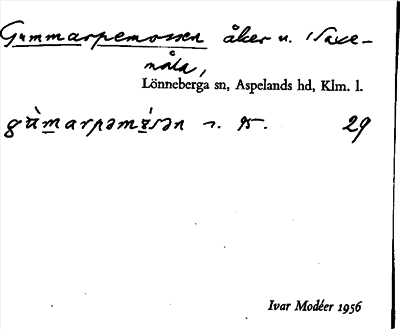 Gummarpemossen åker u. Naxe-
måla,
Lönneberga sn, Aspelands hd, Klm. l.
gùmarpəmósən 29
Ivar Modéer 1956